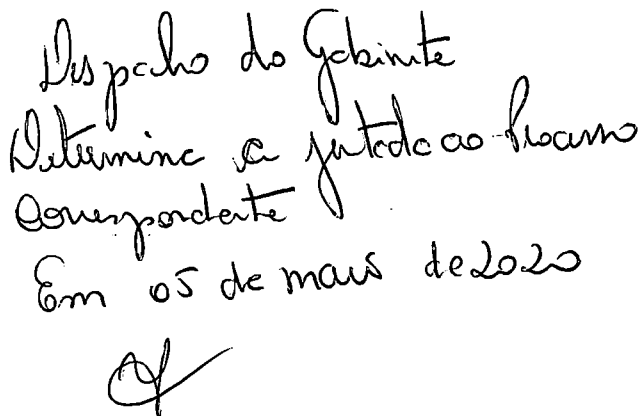 Despacho do Gabinete
Determino a juntada ao Processo
Correspondente
Em 05 de maio de 2020